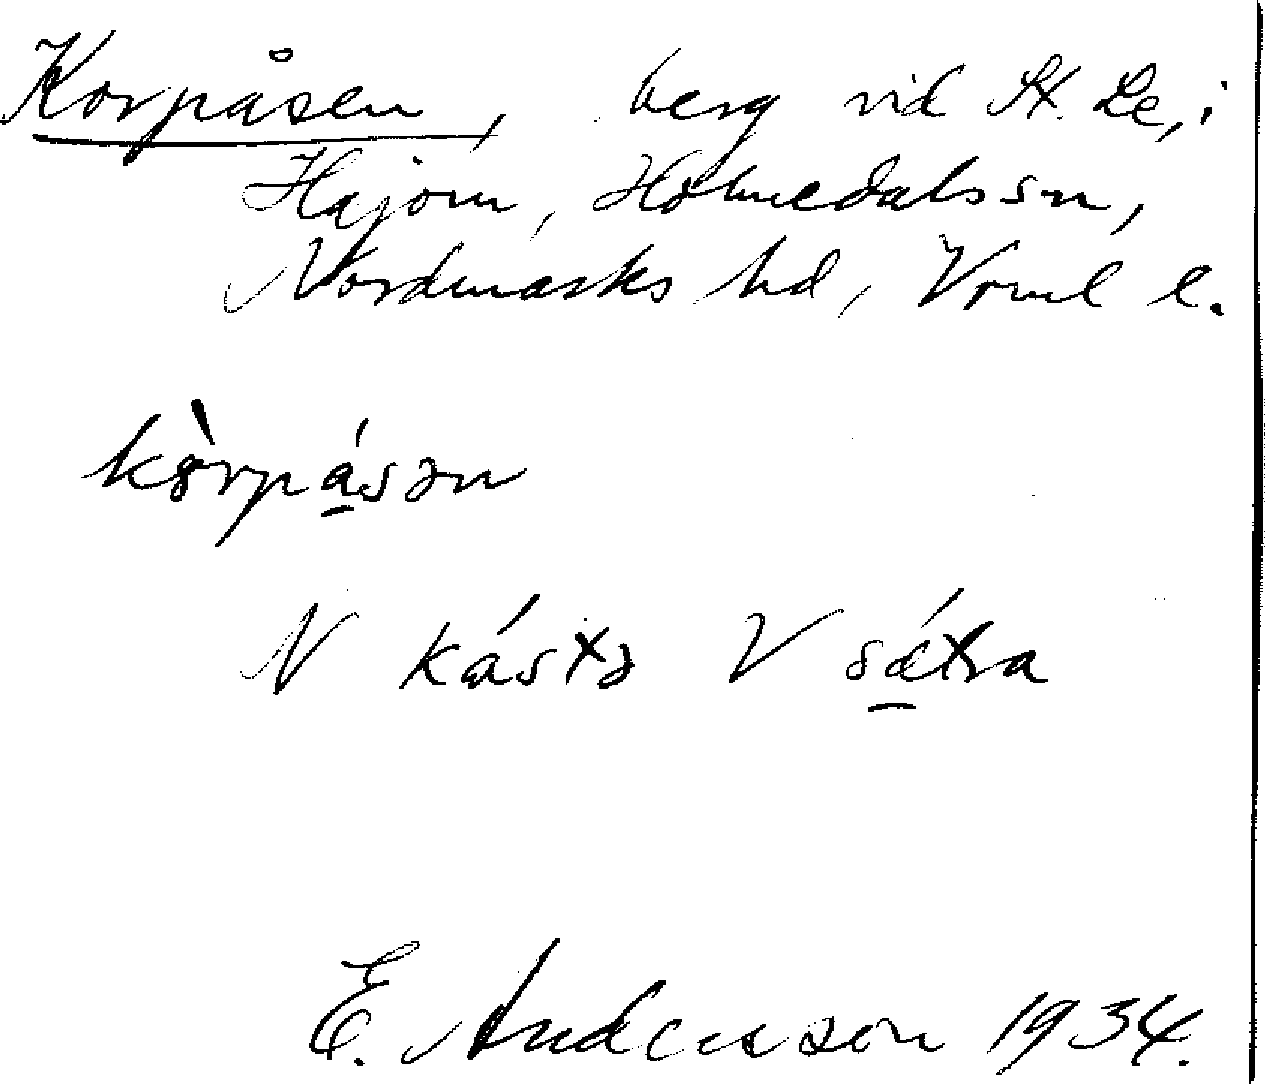 Korpåsen, berg vid St. Le, i
Hajom, Holmedals sn,
Nordmarks hd, Vrml l.
kòrpásən
N kástə V sǽtra
E. Andersson 1934.